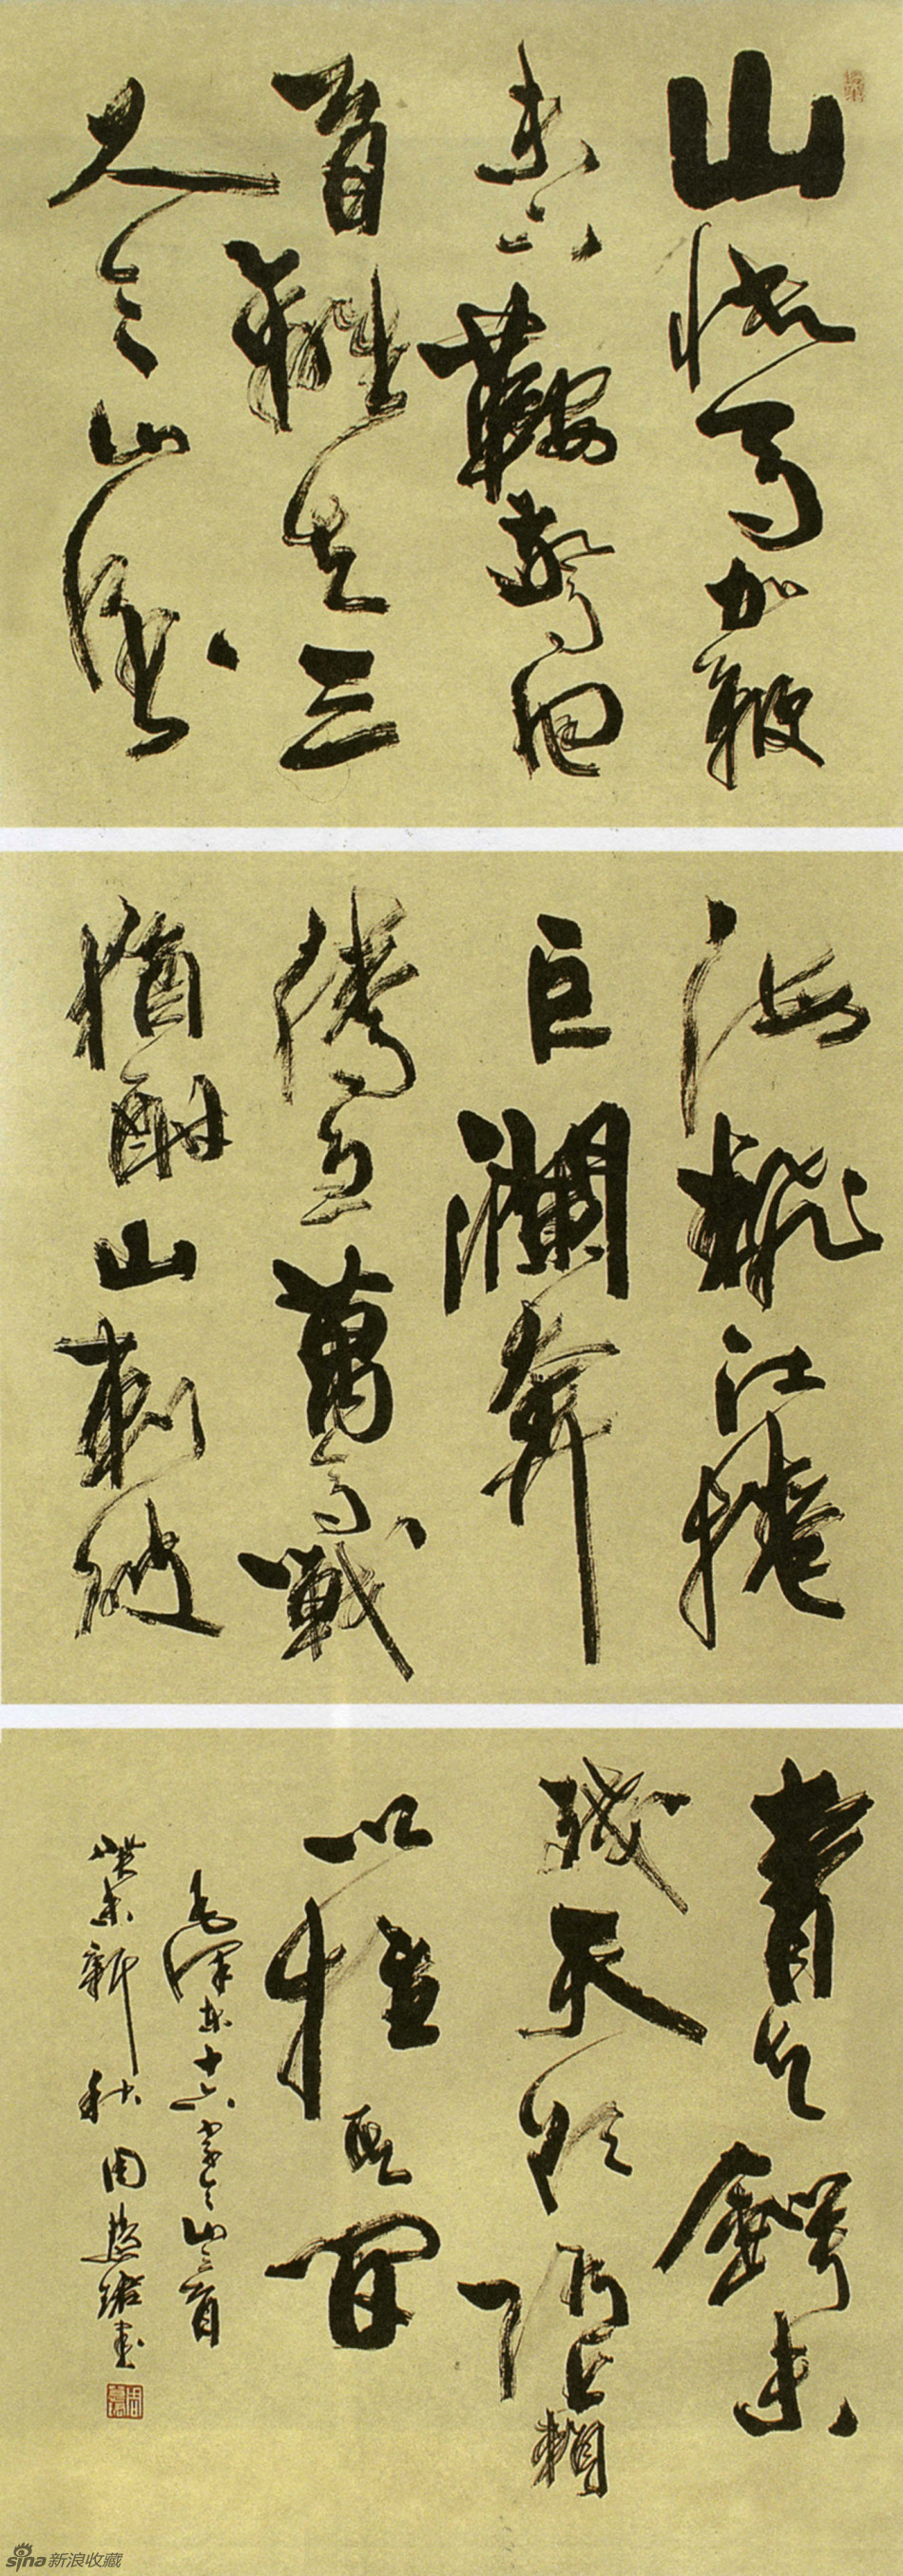 山快馬加鞭
未下鞍驚回
首離天三
尺三山倒
海翻江捲
巨瀾奔
騰急萬馬戰
猶酣山刺破
青天鍔未
殘天欲墮賴
以柱其間
毛澤東十六字令山三首
癸未新秋周慧珺書
sina新浪收藏